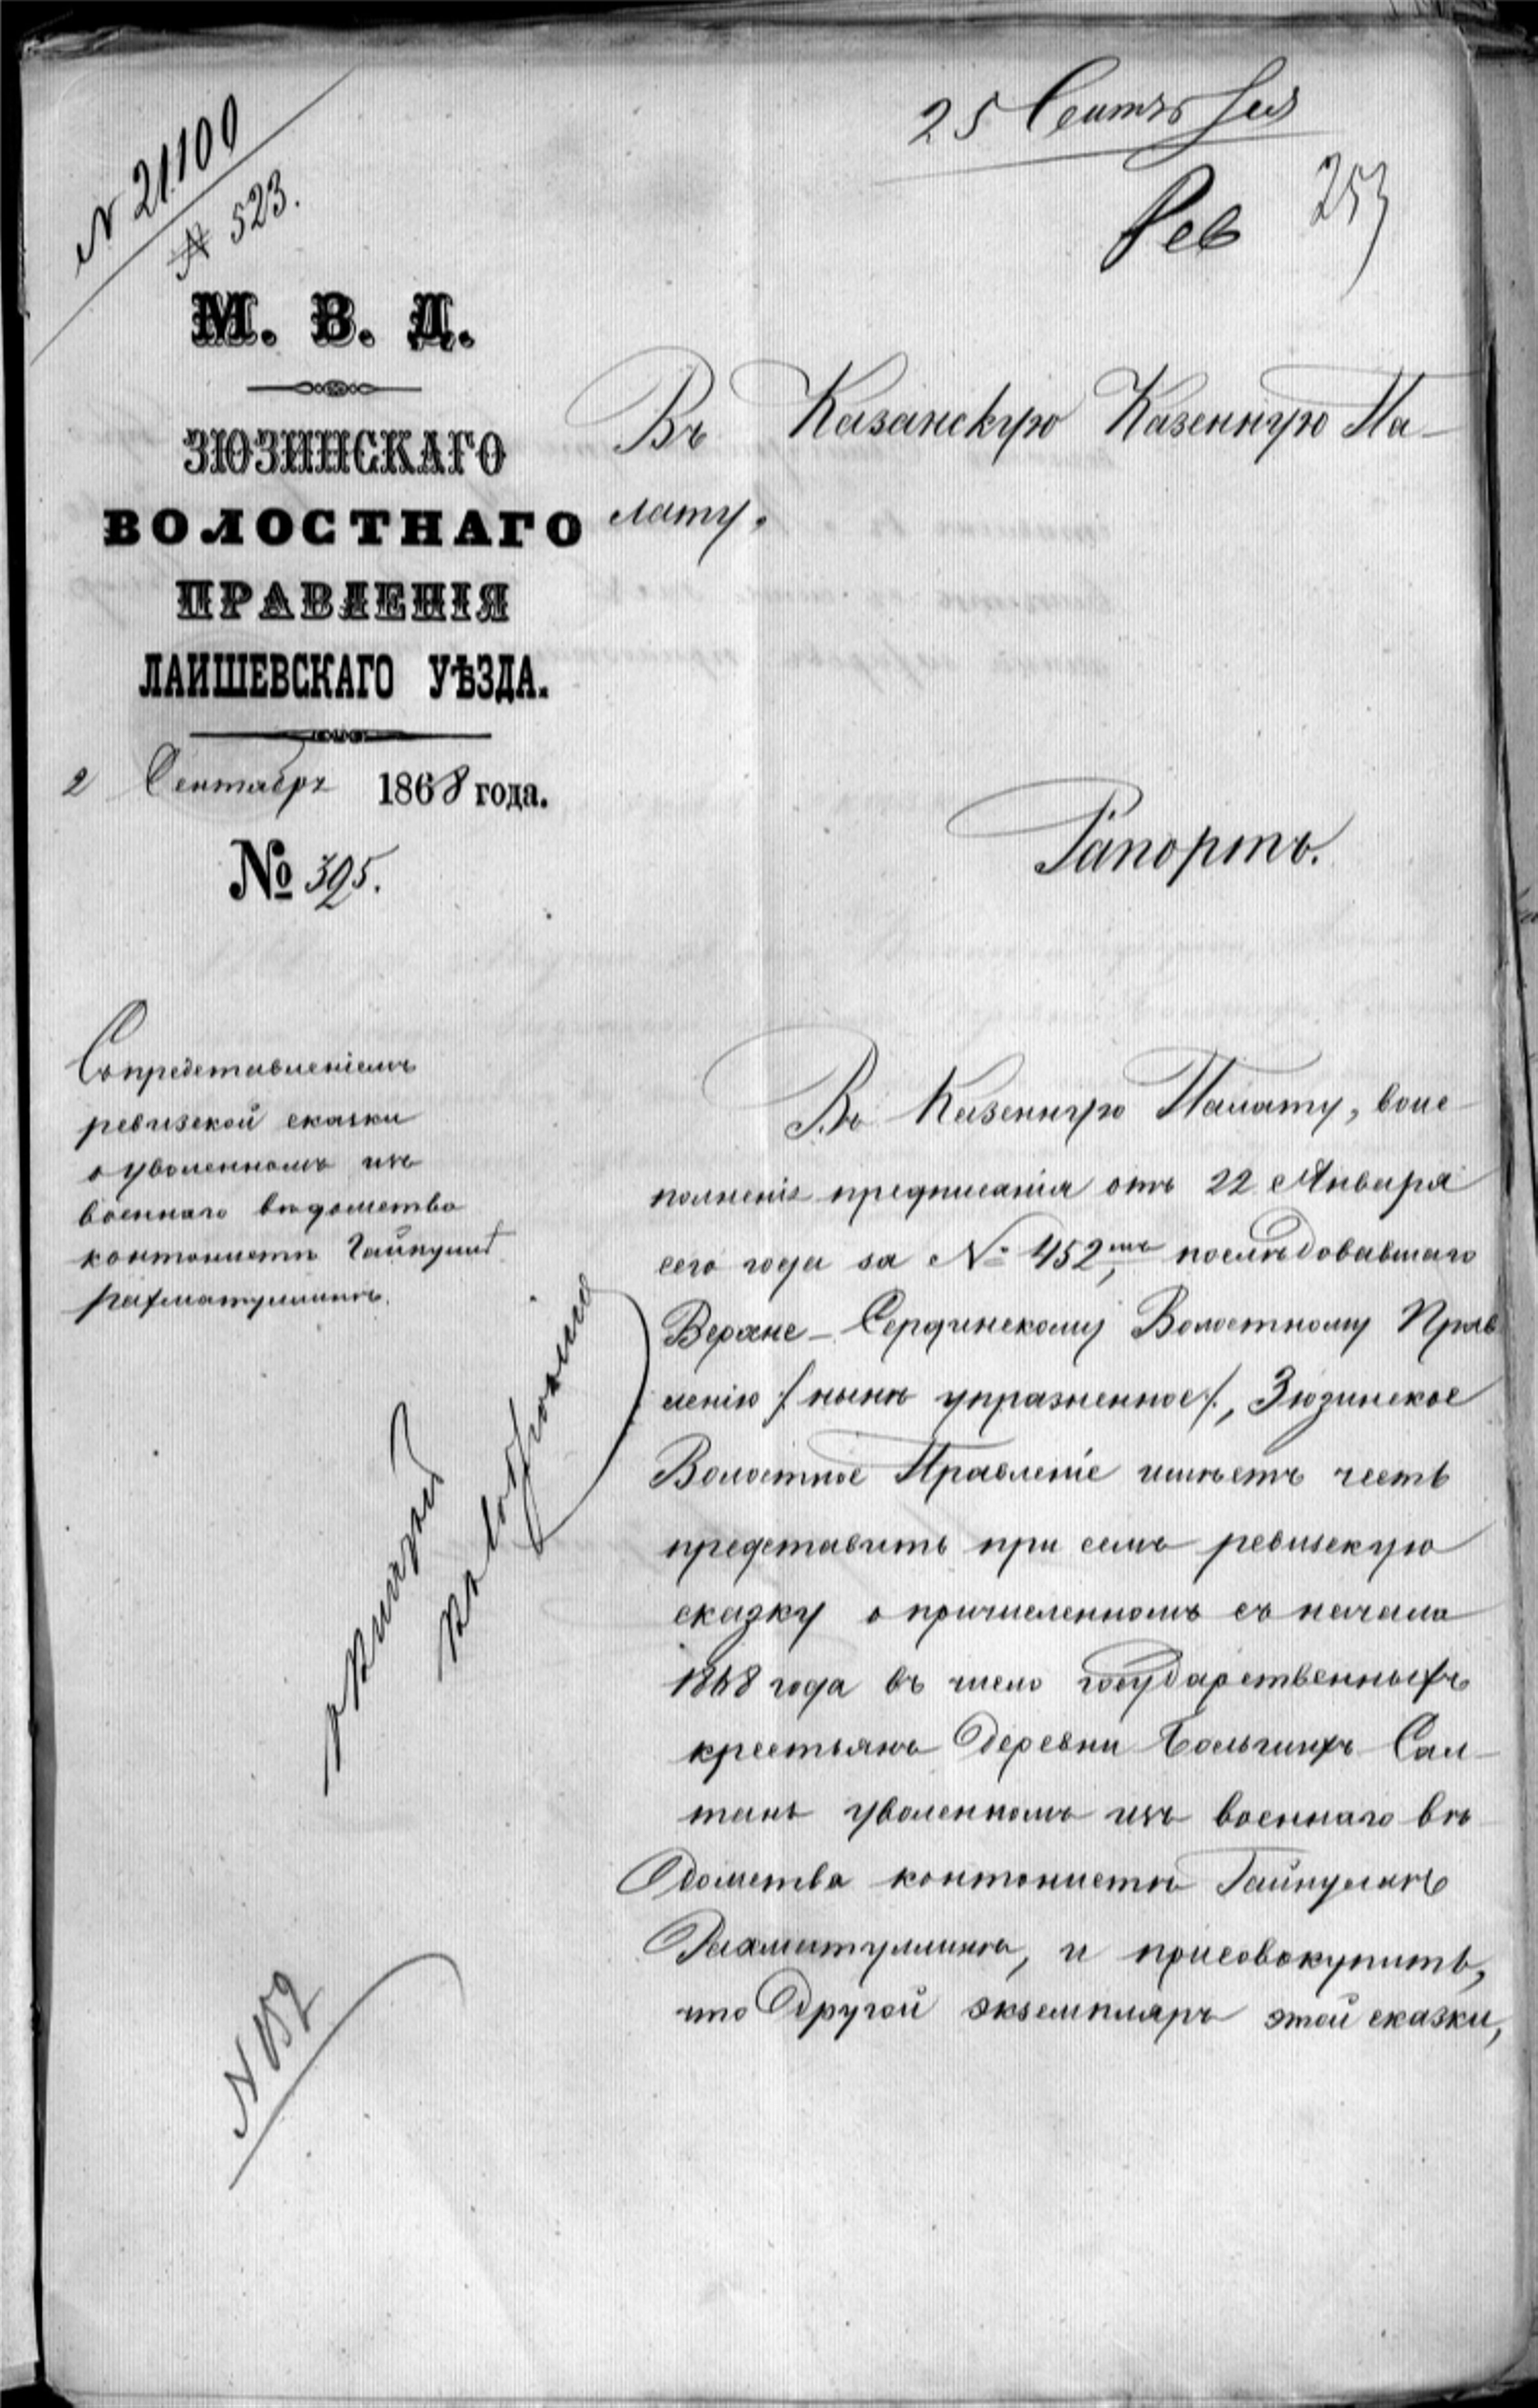 № 21100
№ 523.
25 Сентября
Рев
253
М. В. Д.
ЗЮЗИНСКАГО
ВОЛОСТНАГО
ПРАВЛЕНІЯ
ЛАИШЕВСКАГО УѢЗДА.
2 Сентября 1868 года.
№ 395.
Въ Казанскую Казенную Па-
лату.
Рапортъ.
Съ представленіемъ
ревизской сказки
о уволенномъ изъ
военнаго вѣдомства
контонистѣ Гайнулинѣ
Рахматуллинѣ.
Въ Казенную Палату, во ис-
полненіе предписанія отъ 22 Января
сего года за № 452мъ, послѣдовавшаго
Верхне-Сердинскому Волостному Прав
ленію /: нынѣ упразненное :/, Зюзинское
Волостное Правленіе имѣетъ честь
представить при семъ ревизскую
сказку о причисленномъ съ начала
1868 года въ число государственныхъ
крестьянъ деревни Большихъ Сал-
танъ уволенномъ изъ военнаго вѣ-
домства контонистѣ Гайнулинѣ
Рахматуллинѣ, и присовокупить,
что другой экземпляръ этой сказки,
№ 152